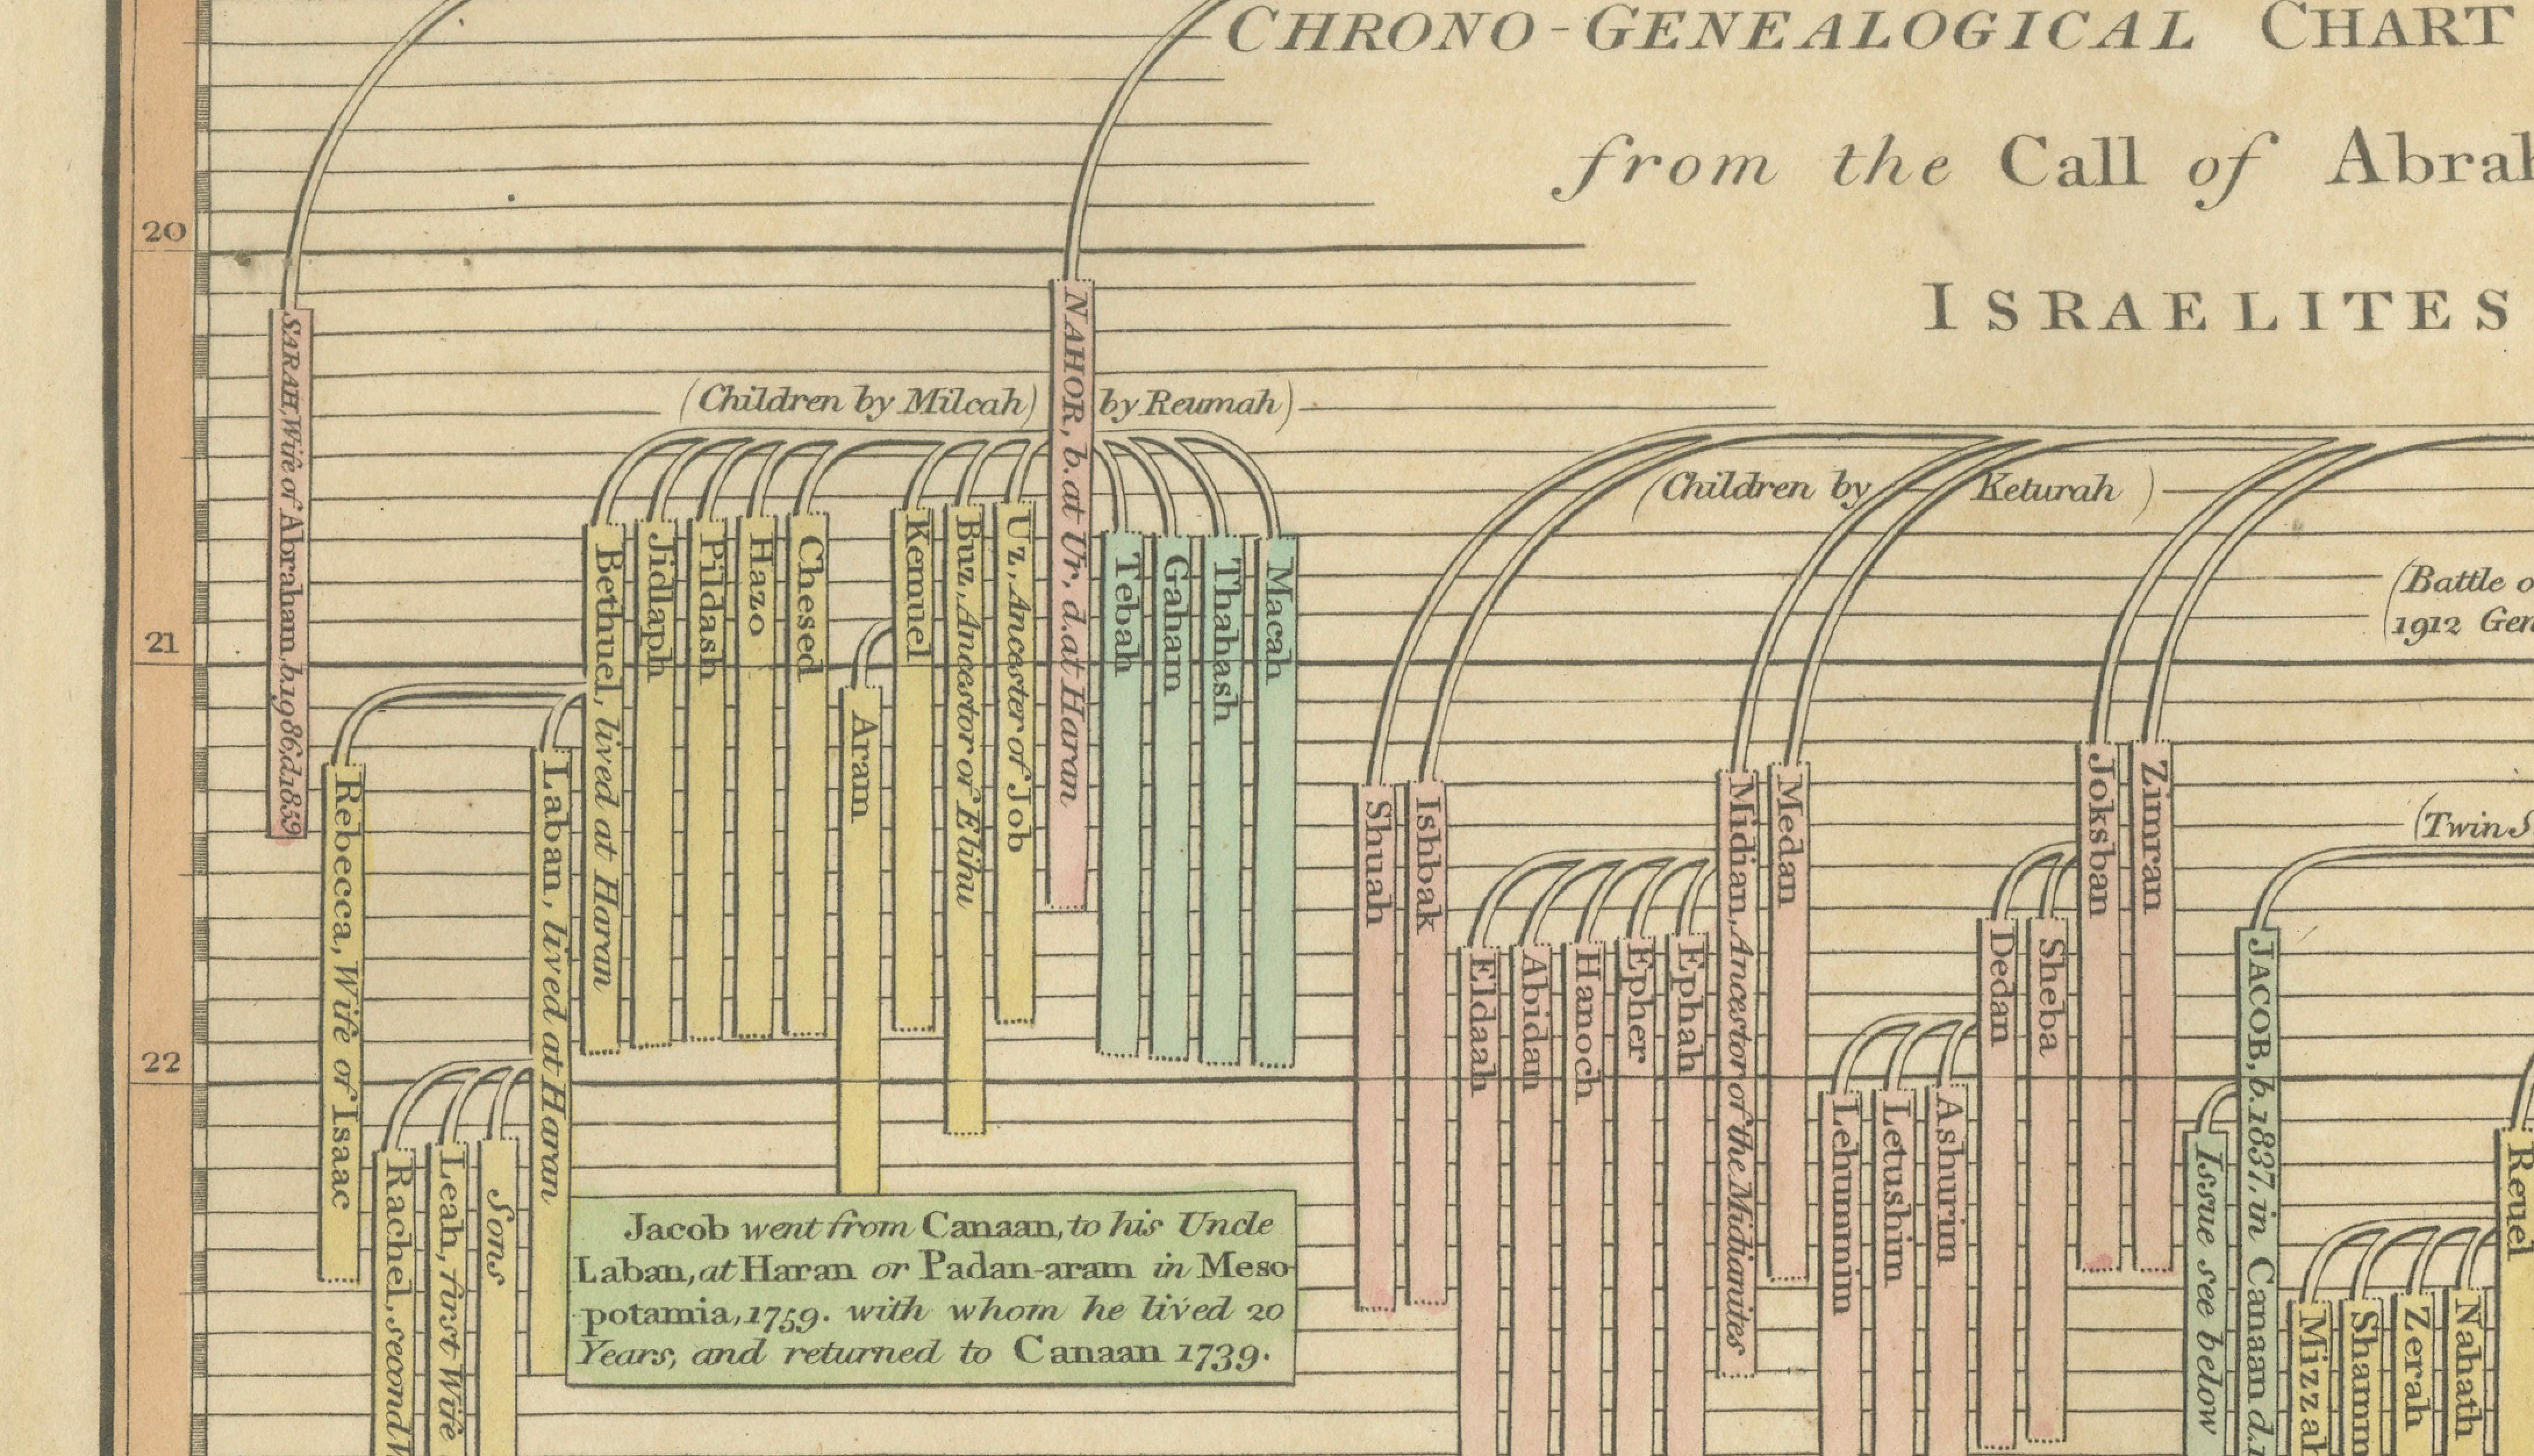 CHRONO-GENEALOGICAL CHART
from the Call of
ISRAELITES
20
21
22
SARAH, Wife of Abraham, b. 1986, d. 1859
(Children by Milcah)
NAHOR, b. at Ur, d. at Haran
by Reumah)
Bethuel, lived at Haran
Jidlaph
Pildash
Hazo
Chesed
Aram
Kemuel
Buz, Ancestor of Elihu
Uz, Ancester of Job
Tebah
Gaham
Thahash
Macah
Rebecca, Wife of Isaac
Laban, lived at Haran
Rachel, second
Leah, first Wife
Sons
Jacob went from Canaan, to his Uncle
Laban, at Haran or Padan-aram in Meso-
potamia, 1759. with whom he lived 20
Years, and returned to Canaan 1739.
(Children by Keturah)
Shuah
Ishbak
Eldaah
Abidan
Hanoch
Epher
Ephah
Midian, Ancestor of the Midianites
Medan
Lehummim
Letushim
Ashurim
Dedan
Sheba
Joksban
Zimran
(Battle
1912
(Twin
JACOB, b. 1837, in Canaan d.
Issue see below
Reuel
Zerah
Nahath